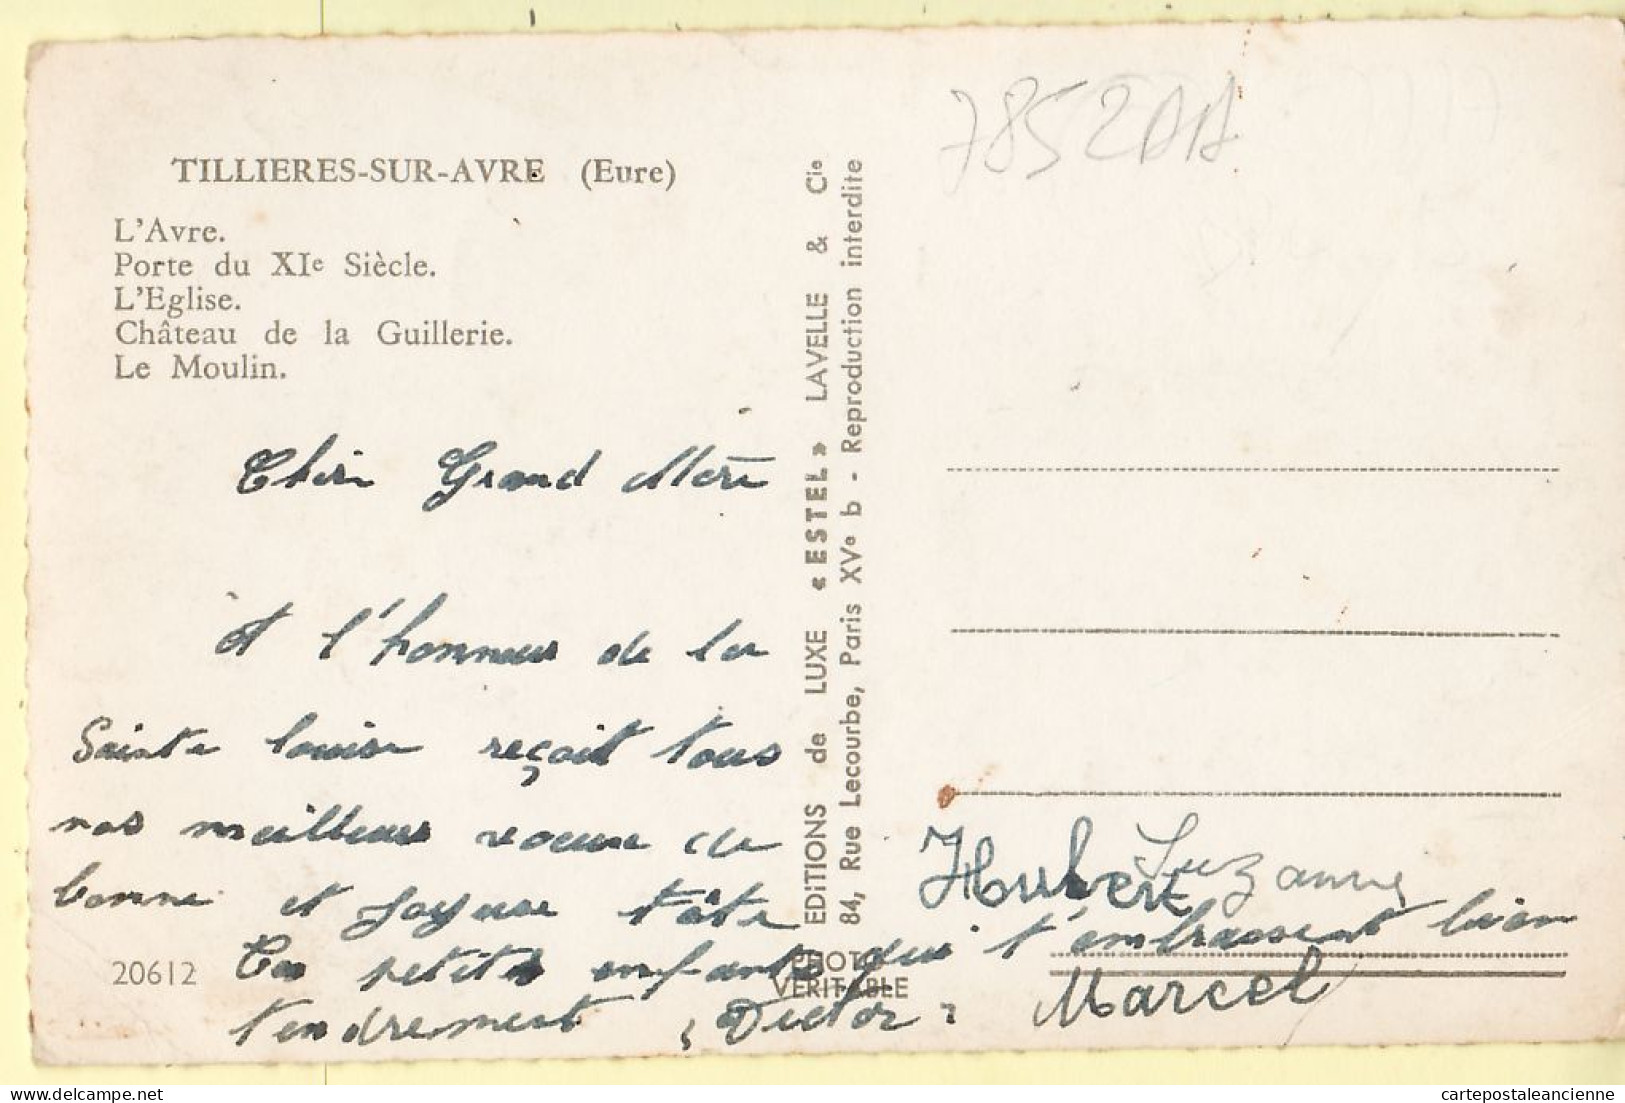 7852AA
TILLIERES-SUR-AVRE (Eure)
L'Avre.
Porte du XIe Siècle.
L'Eglise.
Château de la Guillerie.
Le Moulin.
EDITIONS de LUXE « ESTEL » LAVELLE & Cie
84, Rue Lecourbe, Paris XVe b - Reproduction interdite
PHOTO
VERITABLE
Grand Mère
l'honneur de la
Sainte louise reçoit tous
nos meilleurs voeux de
bonne et joyeuse
petits enfants qui t'embrassent bien
tendrement Victor
Hubert Suzanne
Marcel
20612
cartepostaleancienne